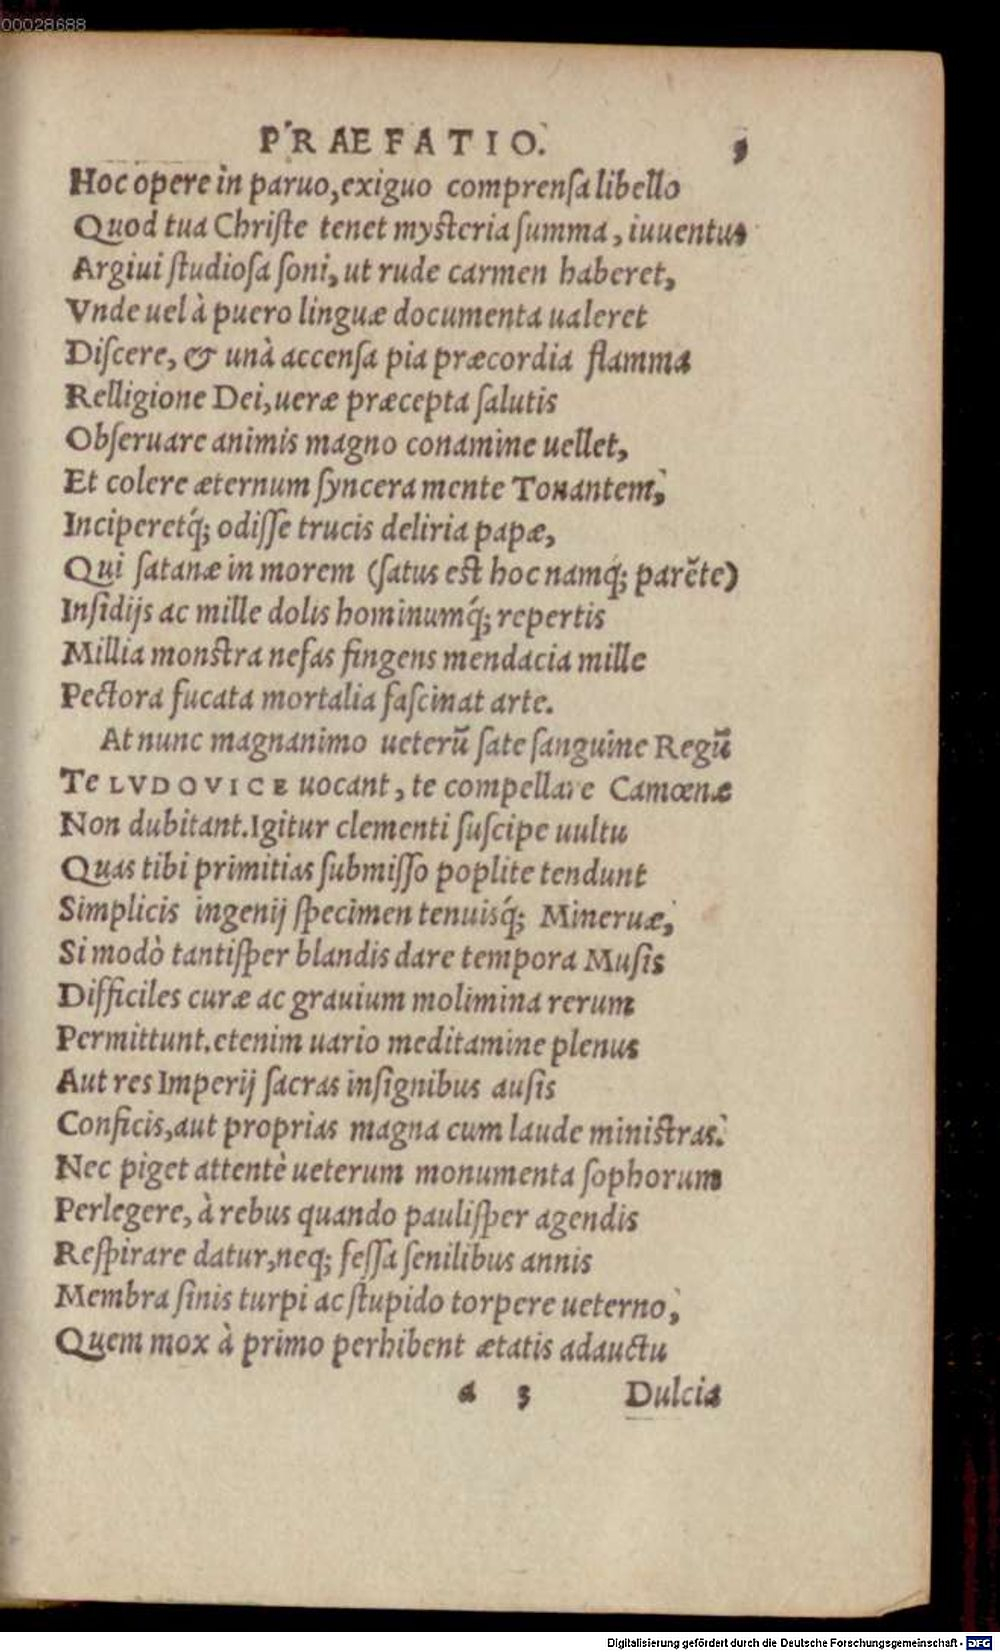 00028688
PRAEFATIO.
Hoc opere in paruo, exiguo comprenſa libello
Quod tua Chriſte tenet myſteria ſumma, iuuentus
Argiui ſtudioſa ſoni, ut rude carmen haberet,
Vnde uel à puero linguæ documenta ualeret
Diſcere, & unà accenſa pia præcordia flamma
Relligione Dei, ueræ præcepta ſalutis
Obſeruare animis magno conamine uellet,
Et colere æternum ſyncera mente Tonantem,
Inciperetq́; odiſſe trucis deliria papæ,
Qui ſatanæ in morem (ſatus eſt hoc namq́; parẽte)
Inſidijs ac mille dolis hominumq́; repertis
Millia monſtra nefas fingens mendacia mille
Pectora fucata mortalia faſcinat arte.
At nunc magnanimo ueterũ ſate ſanguine Regũ
Te LVDOVICE uocant, te compellare Camœnæ
Non dubitant. Igitur clementi ſuſcipe uultu
Quas tibi primitias ſubmiſſo poplite tendunt
Simplicis ingenij ſpecimen tenuisq́; Mineruæ,
Si modò tantiſper blandis dare tempora Muſis
Difficiles curæ ac grauium molimina rerum
Permittunt. etenim uario meditamine plenus
Aut res Imperij ſacras inſignibus auſis
Conficis, aut proprias magna cum laude miniſtras.
Nec piget attentè ueterum monumenta ſophorum
Perlegere, à rebus quando pauliſper agendis
Reſpirare datur, neq; feſſa ſenilibus annis
Membra ſinis turpi ac ſtupido torpere ueterno,
Quem mox à primo perhibent ætatis adauctu
a 3 Dulcia
Digitalisierung gefördert durch die Deutsche Forschungsgemeinschaft - DFG